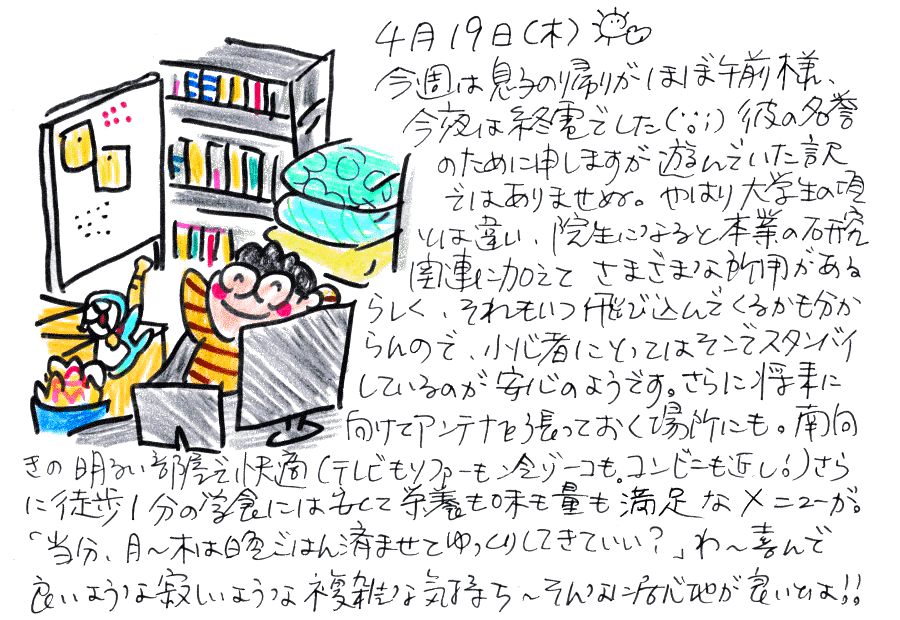 4月19日(木)
今週は息子の帰りがほぼ午前様、
今夜は終電でした(°°;) 彼の名誉
のために申しますが遊んでいた訳
ではありませぬ。やはり大学生の頃
とは違い、院生になると本業の研究
関連に加えてさまざまな所用がある
らしく、それもいつ飛び込んでくるかも分か
らんので、小心者にとってはそこでスタンバイ
しているのが安心のようです。さらに将来に
向けてアンテナを張っておく場所にも。南向
きの明るい部屋で快適(テレビもソファーも冷ゾーコも。コンビニも近し!)さら
に徒歩1分の学食には安くて栄養も味も量も満足なメニューが。
「当分、月〜木は晩ごはん済ませてゆっくりしてきていい?」わ〜喜んで
良いような寂しいような複雑な気持ち〜そんなに居心地が良いとは!!